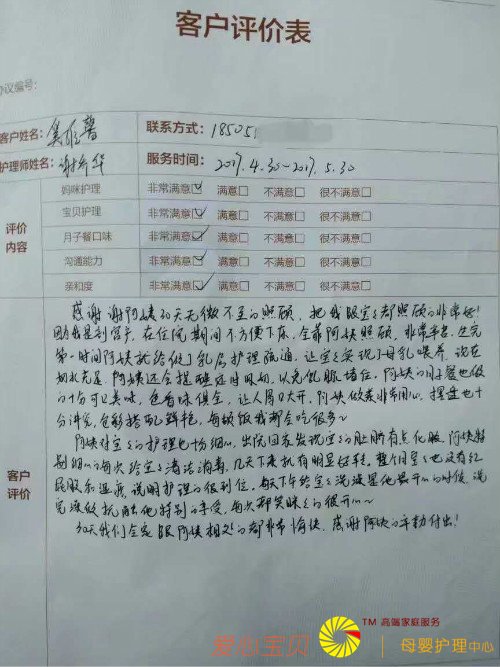 客户评价表
协议编号:
客户姓名:
联系方式: 185051
护理师姓名: 谢乔华
服务时间: 2017.4.30-2017.5.30
评价内容
妈咪护理 非常满意☑ 满意☐ 不满意☐ 很不满意☐
宝贝护理 非常满意☑ 满意☐ 不满意☐ 很不满意☐
月子餐口味 非常满意☑ 满意☐ 不满意☐ 很不满意☐
沟通能力 非常满意☑ 满意☐ 不满意☐ 很不满意☐
亲和度 非常满意☑ 满意☐ 不满意☐ 很不满意☐
客户评价
感谢谢阿姨30天无微不至的照顾,把我跟宝宝都照顾的非常好!
因为我是剖宫产,在住院期间不方便下床,全靠阿姨照顾,非常辛苦,生完
第一时间阿姨就给做了乳房护理疏通,让宝宝实现了母乳喂养,现在
奶水充足,阿姨还会提醒定时吸奶,以免乳腺堵住,阿姨的月子餐也做
的十分可口美味,色香味俱全,让人胃口大开,阿姨做菜非常用心,摆盘也十
分讲究,色彩搭配鲜艳,每顿饭我都会吃很多~
阿姨对宝宝的护理也十分细心,出院回家发现宝宝的肚脐有点化脓,阿姨特
别细心的每次给宝宝清洁消毒,几天下来就有明显好转,整个月宝宝也没有红
屁股和湿疹,说明护理的很到位,每天下午给宝宝洗澡是他最开心的时候,洗
完澡做抚触他特别的享受,每次都笑眯眯的很开心~
30天我们全家跟阿姨相处的都非常愉快,感谢阿姨的辛勤付出!
爱心宝贝
TM 高端家庭服务
母婴护理中心